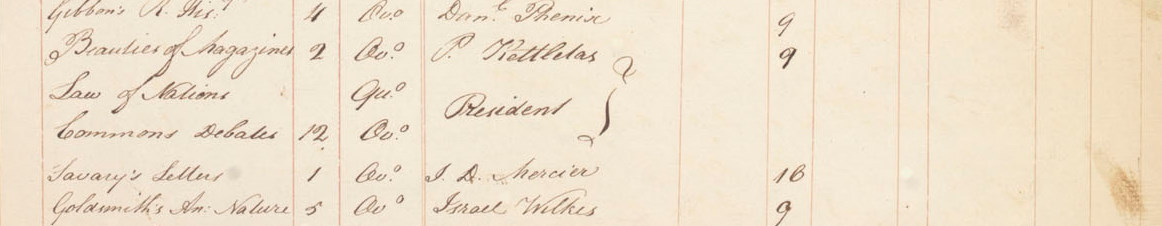 Gibbon's R. His.y 4 Oo.o Dan.l Phenix 9
Beauties of Magazines 2 Oo.o P. Kettletas 9
Law of Nations Qu.o
President
Commons Debates 12 Oo.o
Savary's Letters 1 Oo.o J. D. Mercier 16
Goldsmith's An: Nature 5 Oo.o Israel Wilkes 9